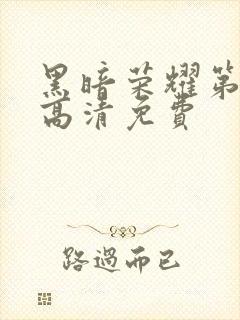 黑暗荣耀第
高清免费
路過而已